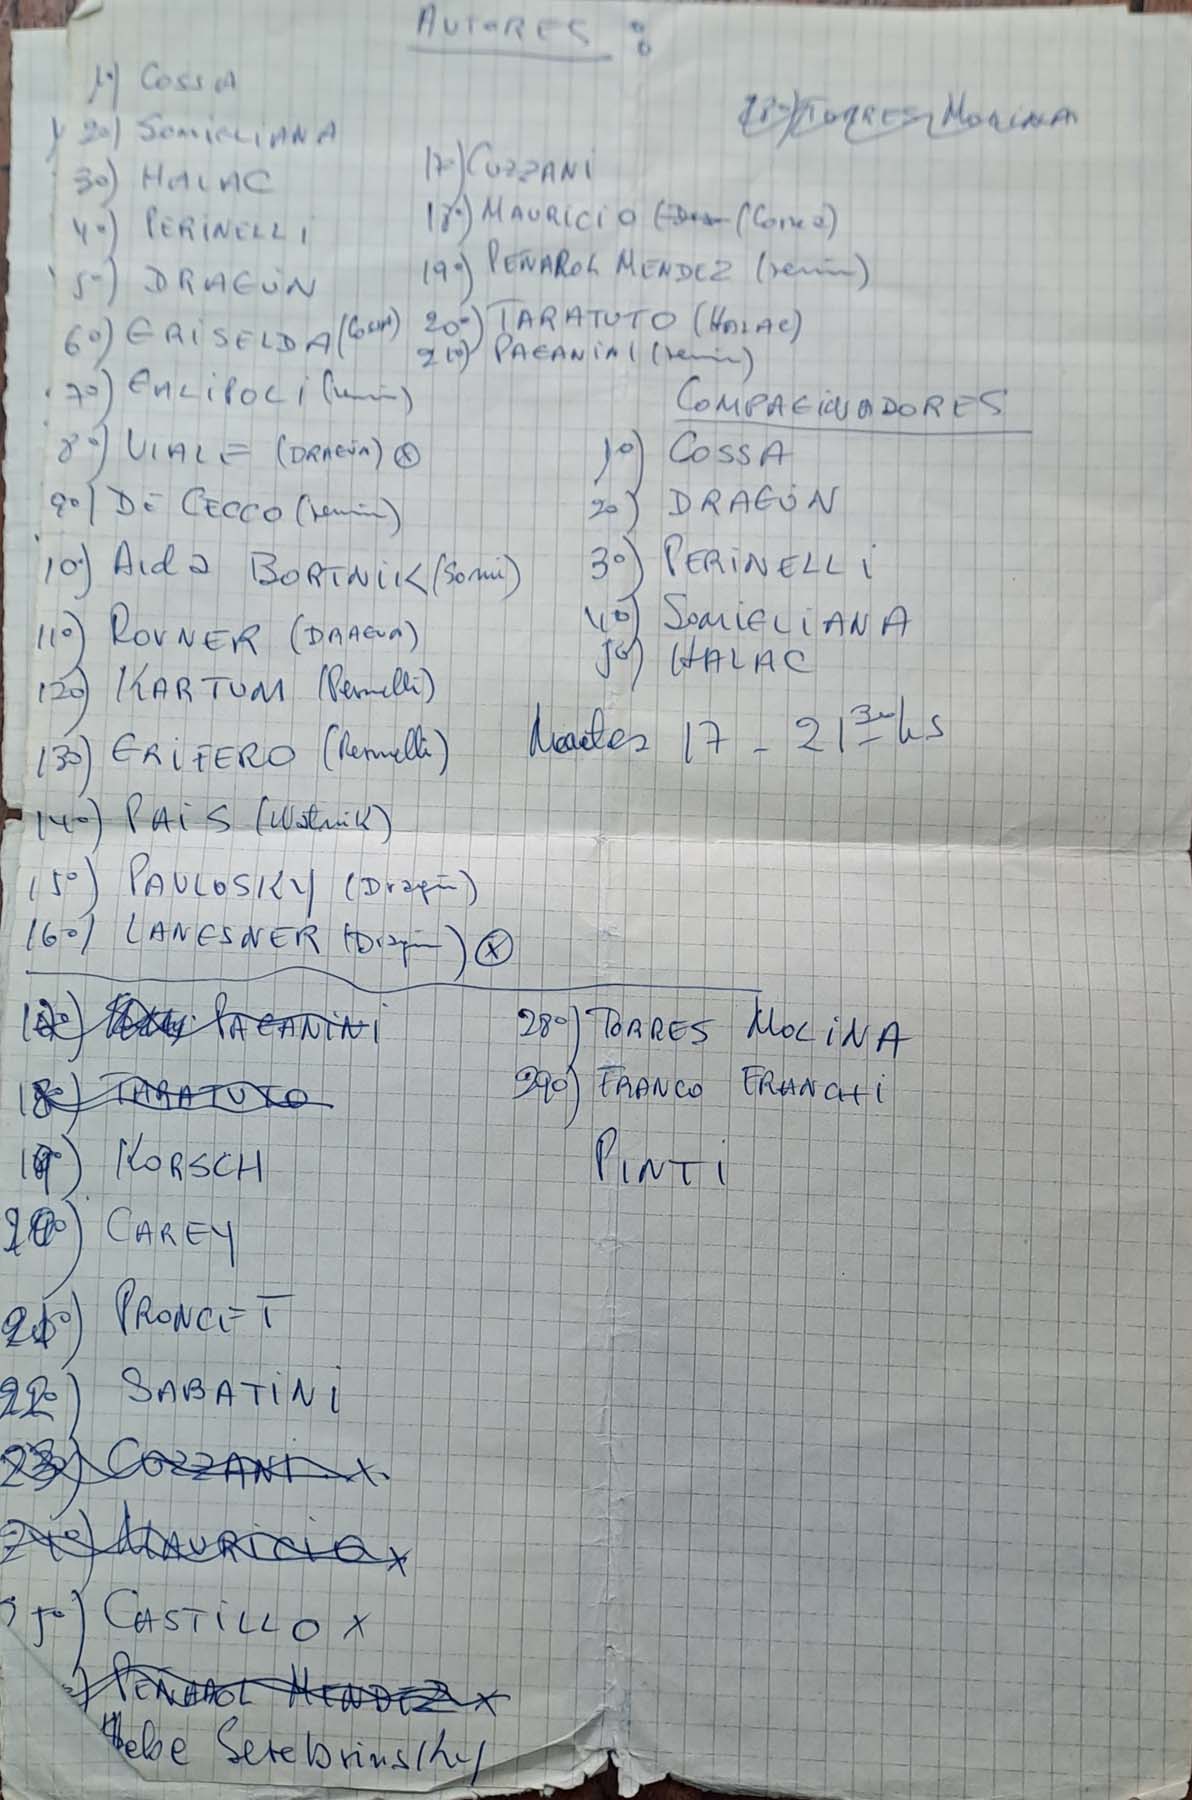 AUTORES :
1º) COSSA
2º) SOMIGLIANA
3º) HALAC
4º) PERINELLI
5º) DRAGÚN
6º) GRISELDA (COSSA)
7º) GALIPOLI (somi)
8º) VIALE (DRAGÚN) ⓧ
9º) DE CECCO (somi)
10º) Aida BORTNIK (Somi)
11º) ROVNER (DRAGÚN)
12º) KARTUM (Perinelli)
13º) GRIFERO (Perinelli)
14º) PAIS (Wolnik)
15º) PAVLOSKY (Dragún)
16º) LANGSNER (Dragún) ⓧ
28º) TORRES MOLINA
17º) COZZANI
18º) MAURICIO (Cossa)
19º) PEÑAROL MENDEZ (somi)
20º) TARATUTO (HALAC)
21º) PAGANINI (somi)
COMPAGINADORES
1º) COSSA
2º) DRAGÚN
3º) PERINELLI
4º) SOMIGLIANA
5º) HALAC
Martes 17 - 21 30 hs
PAGANINI
18º) TARATUTO
19º) KORSCH
20º) CAREY
21º) PRONCET
22º) SABATINI
23º) COZZANI X
24º) MAURICIO X
25º) CASTILLO X
PEÑAROL MENDEZ X
Hebe Serebrinsky
28º) TORRES MOLINA
29º) FRANCO FRANCHI
PINTI